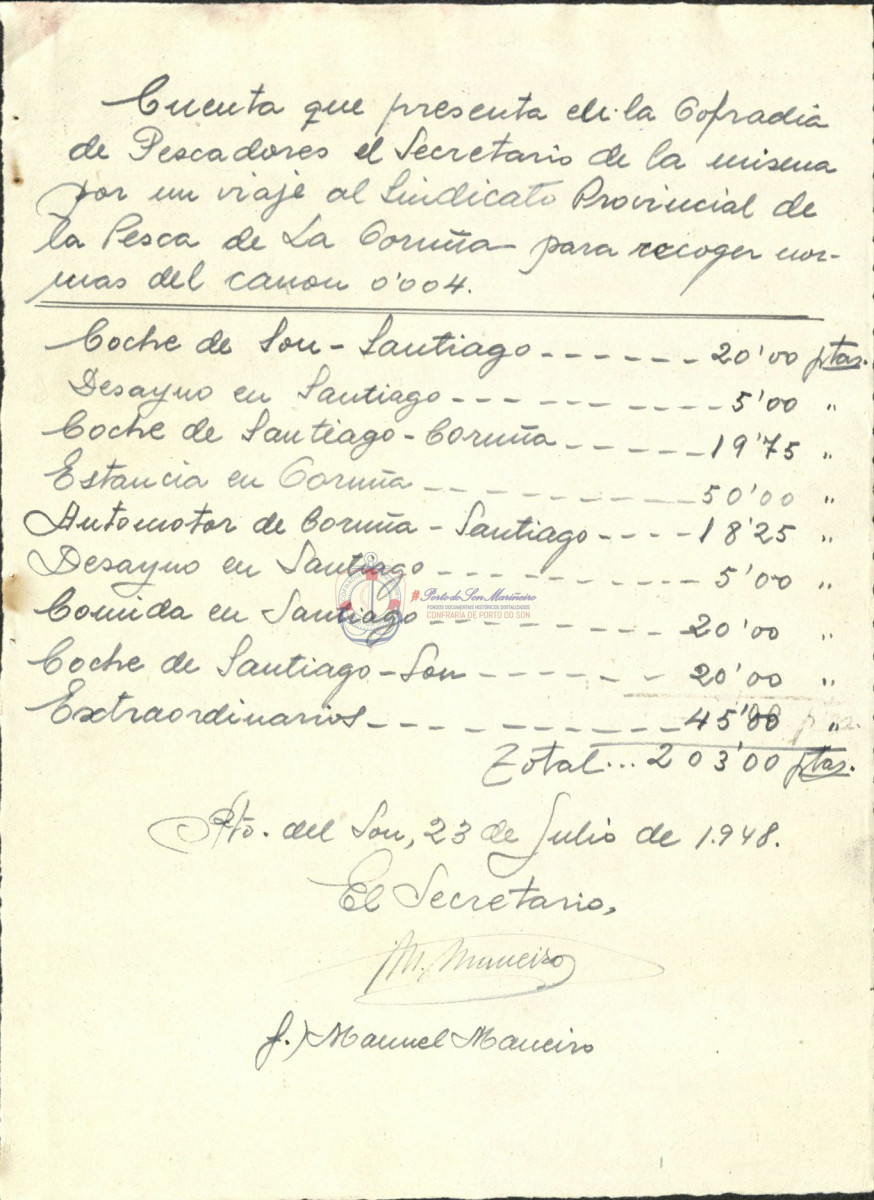 Cuenta que presenta en la Cofradia
de Pescadores el Secretario de la misma
por un viaje al Sindicato Provincial de
la Pesca de La Coruña para recoger nor-
mas del canon 0'004.
Coche de Son - Santiago ------ 20'00 ptas.
Desayno en Santiago --- -- -- --- 5'00 "
Coche de Santiago - Coruña ------ 19'75 "
Estancia en Coruña --------- 50'00 "
Automotor de Coruña - Santiago ---- 18'25 "
Desayno en Santiago --------- 5'00 "
Comida en Santiago --------- 20'00 "
Coche de Santiago - Son ------ 20'00 "
Extraordinarios --------- 45'00 "
Total... 203'00 ptas.
Pto. del Son, 23 de Julio de 1.948.
El Secretario,
M. Maneiro
f.) Manuel Maneiro
#Porto do Son Mariñeiro
FONDOS DOCUMENTAIS HISTÓRICOS DIXITALIZADOS
CONFRARÍA DE PORTO DO SON